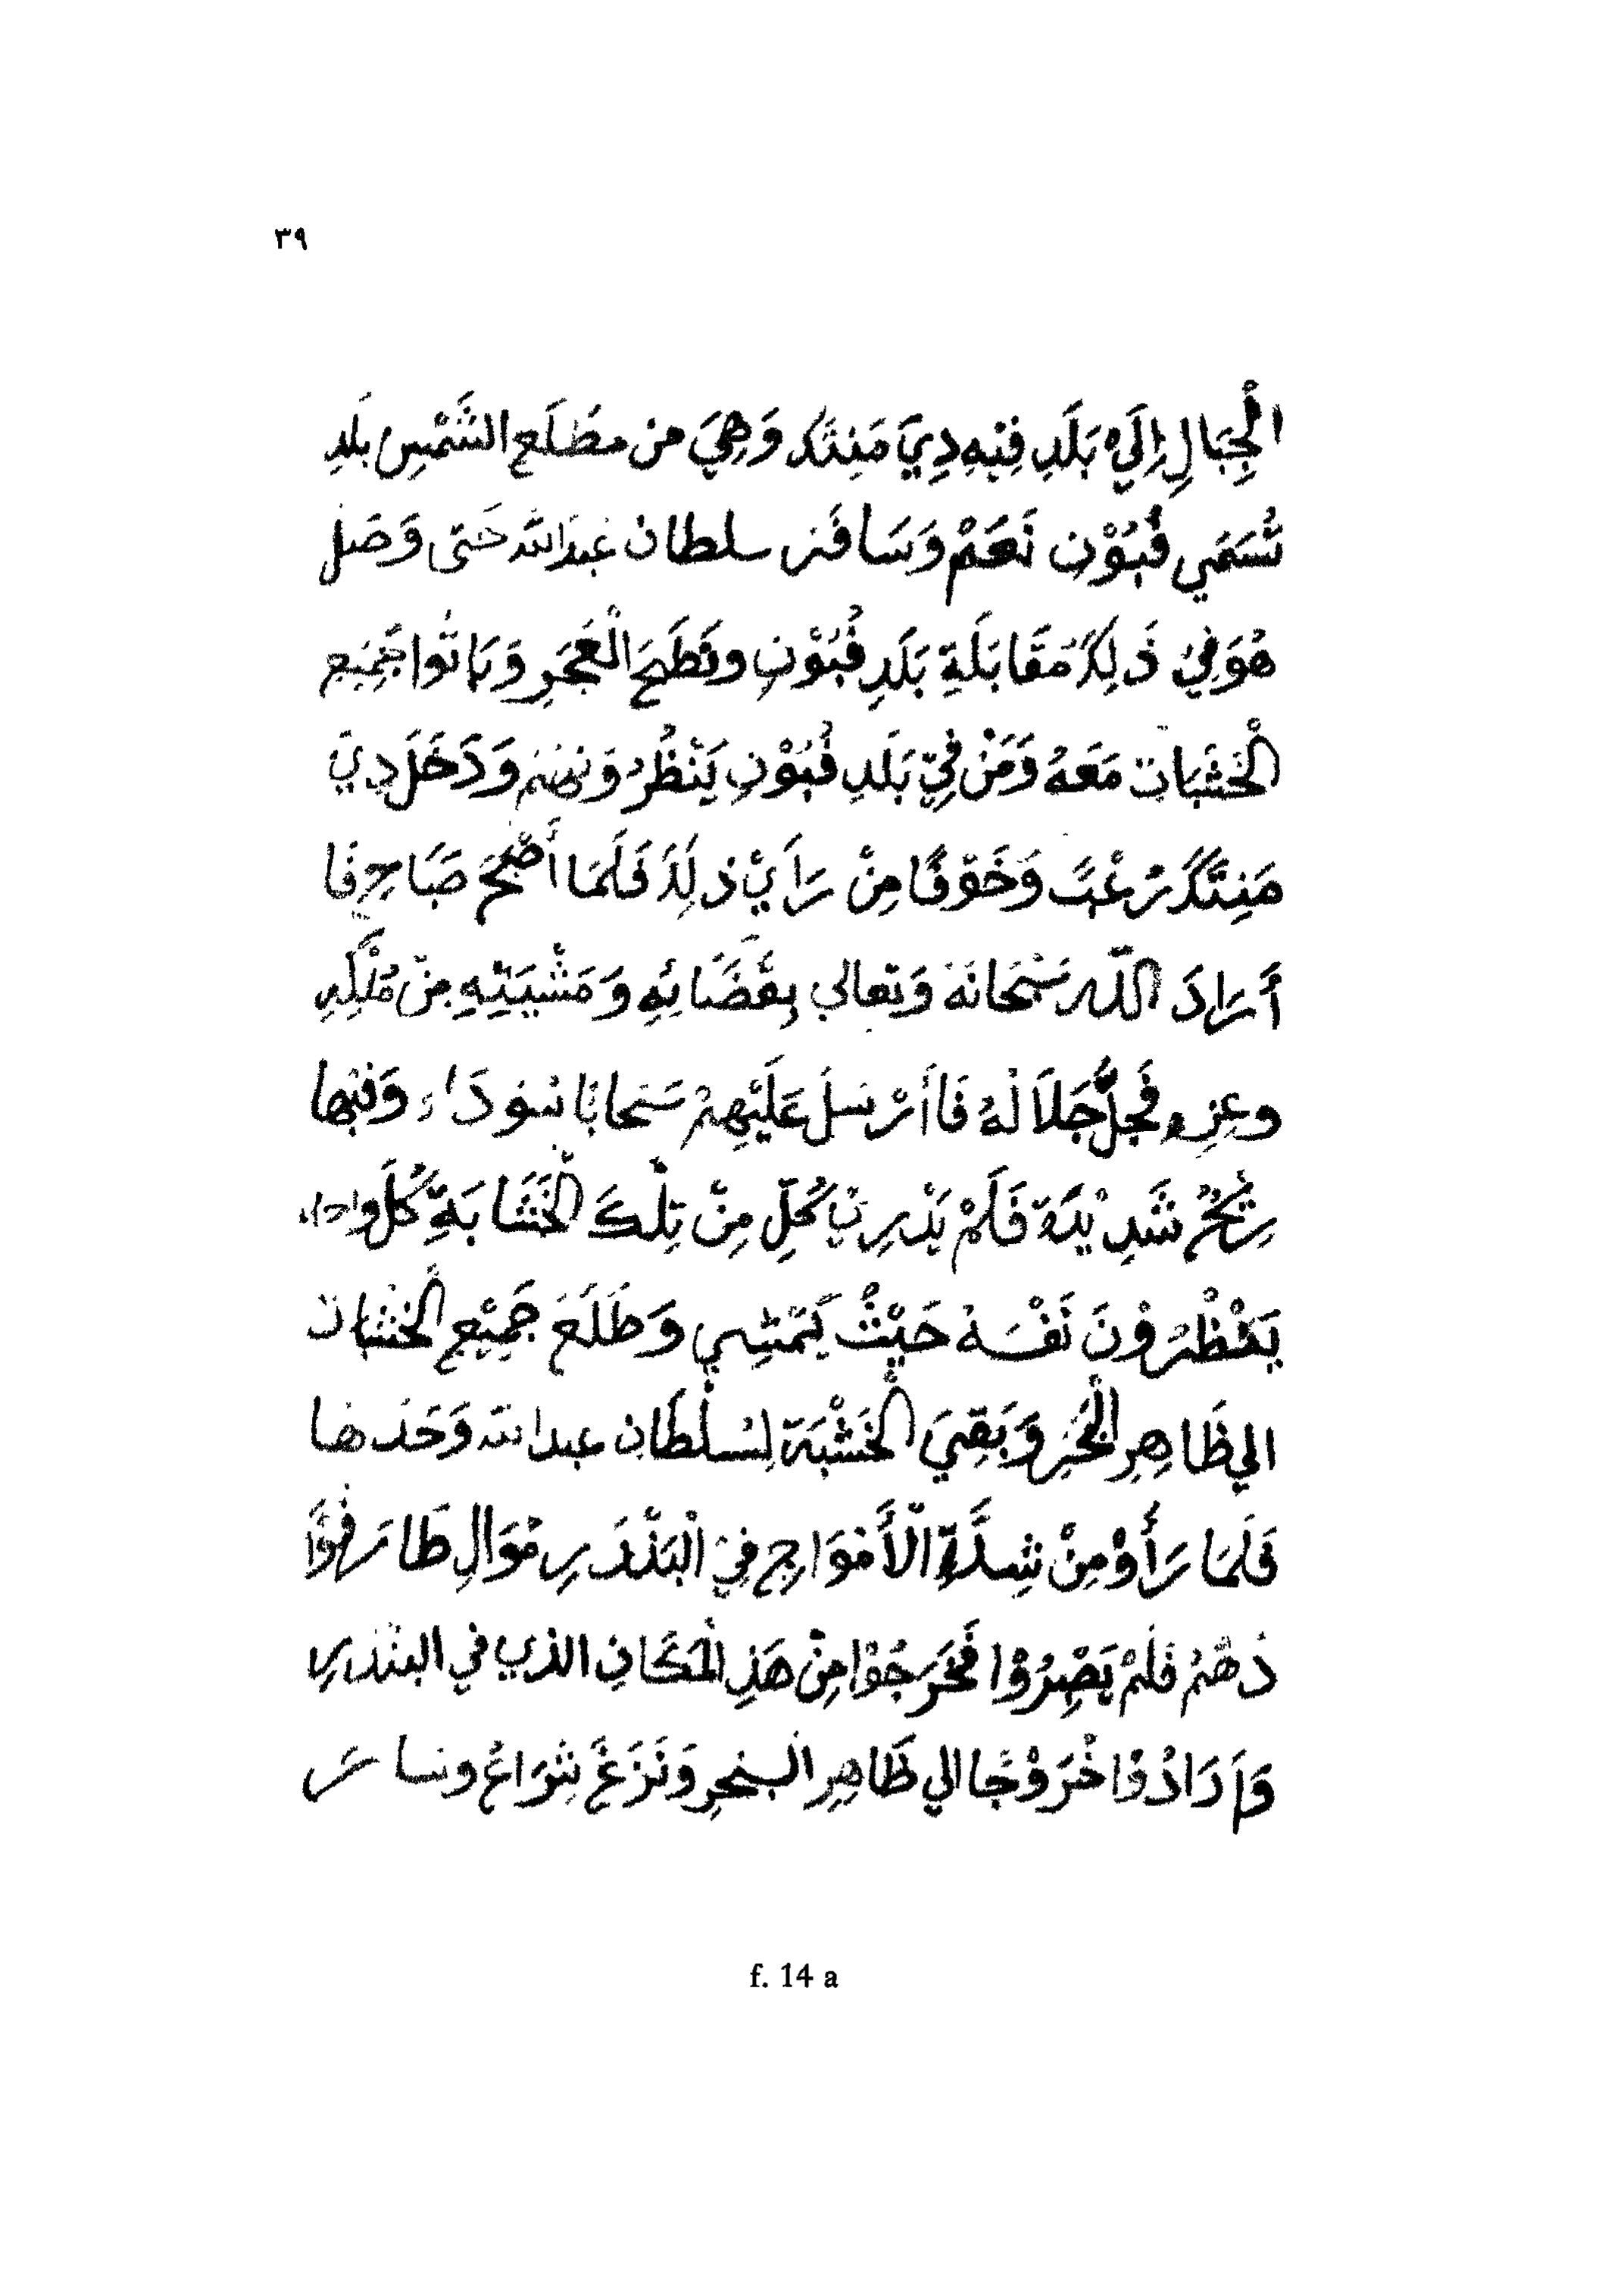 ٣٩
الْجِبَالِ إِلَيْ بَلَدِ فِيْهِ دِيَ مَنِتَكَ وَهِيَ من مطَلَع الشَّمْسِ بلَدِ
تُسَمَي قُبُوْنِ نَعَمْ وَسَافَرَ سلطان عَبْدَاللّه حَتى وَصَلْ
هُوَ فِيْ ذَلِكَ مُقَابَلَةِ بَلَدِ قُبُوْنِ وتَطَرَحَ الْعَجَرِ وَبَاتُوا جَمِيْع
الْخَشَبَات مَعَهُ وَمَنْ فِيّ بَلَدِ قُبُوْنِ يَنْظُرُ وَنهُمْ وَدَخَلَ دِيَ
مَنِتَكَ رُعْبً وَخَوْفًا مِنْ رَاَيْ ذلِكَ فَلَمَا أَصْبَحَ صَبَاحِ فَا
أَرَادَ اللّه سُبْحَانَهُ وَتعالي بِقَضَائِهِ وَمَشْيَيَتِهِ مِنْ مُلْكِهِ
وعِزِهِ فَجلَّ جَلَالَهُ فَاأَرْسَلَ عَلَيْهِمْ سَحابًا سَوْدَاءَ وَفيها
رِيْحُ شَدِيْدَةَ فَلَمْ يَدْرِيْ كُلِّ مِنْ تِلْكَ الْخَشَابَةِ كُلَ واحداء
يَنْظُرُوْنَ نَفْسَهُ حَيْثُ يَمْشِي وَطَلَعَ جَمِيْعِ الْخَشَبَات
الي ظَاهِرِ الْبَحْرِ وَبَقِيَ الْخَشْبَة لِسُلْطَانِ عبداللّه وَحَدَها
فَلمَا رَأَوْ مِنْ شِدَّةِ الْأَمْوَاجِ فِيْ الْبَنْدَرِ مَوَالِ طَارَ فُوًا
ذهُمْ فَلمْ يَصْبِرُوْا فَخَرَجُوْا مِنْ هَذِ الْمَكَانِ الذي في البندَرِ
وَأَرَادُوْا خُرَوْجًا الي ظَاهِرِ الْبَحرِ وَنَزَعَ شِرَاعُ وسَارَ
f. 14 a